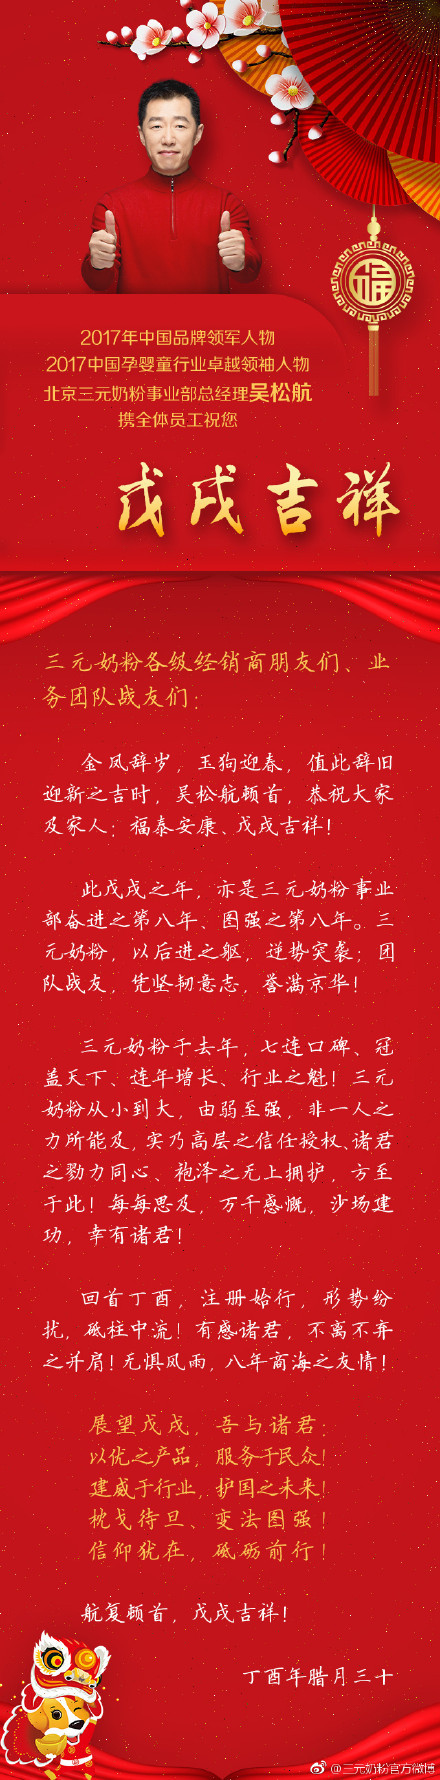 福
2017年中国品牌领军人物
2017中国孕婴童行业卓越领袖人物
北京三元奶粉事业部总经理吴松航
携全体员工祝您
戊戌吉祥
三元奶粉各级经销商朋友们、业
务团队战友们：
金凤辞岁，玉狗迎春，值此辞旧
迎新之吉时，吴松航顿首，恭祝大家
及家人：福泰安康、戊戌吉祥！
此戊戌之年，亦是三元奶粉事业
部奋进之第八年、图强之第八年。三
元奶粉，以后进之躯，逆势突袭；团
队战友，凭坚韧意志，誉满京华！
三元奶粉于去年，七连口碑、冠
盖天下、连年增长、行业之魁！三元
奶粉从小到大，由弱至强，非一人之
力所能及，实乃高层之信任授权、诸君
之勠力同心、袍泽之无上拥护，方至
于此！每每思及，万千感慨，沙场建
功，幸有诸君！
回首丁酉，注册始行，形势纷
扰，砥柱中流！有感诸君，不离不弃
之并肩！无惧风雨，八年商海之友情！
展望戊戌，吾与诸君：
以优之产品，服务于民众！
建威于行业，护国之未来！
枕戈待旦、变法图强！
信仰犹在，砥砺前行！
航复顿首，戊戌吉祥！
丁酉年腊月三十
@三元奶粉官方微博